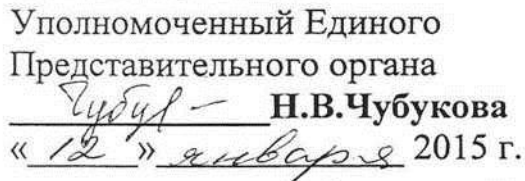 Уполномоченный Единого
Представительного органа
Н.В.Чубукова
« 12 » января 2015 г.